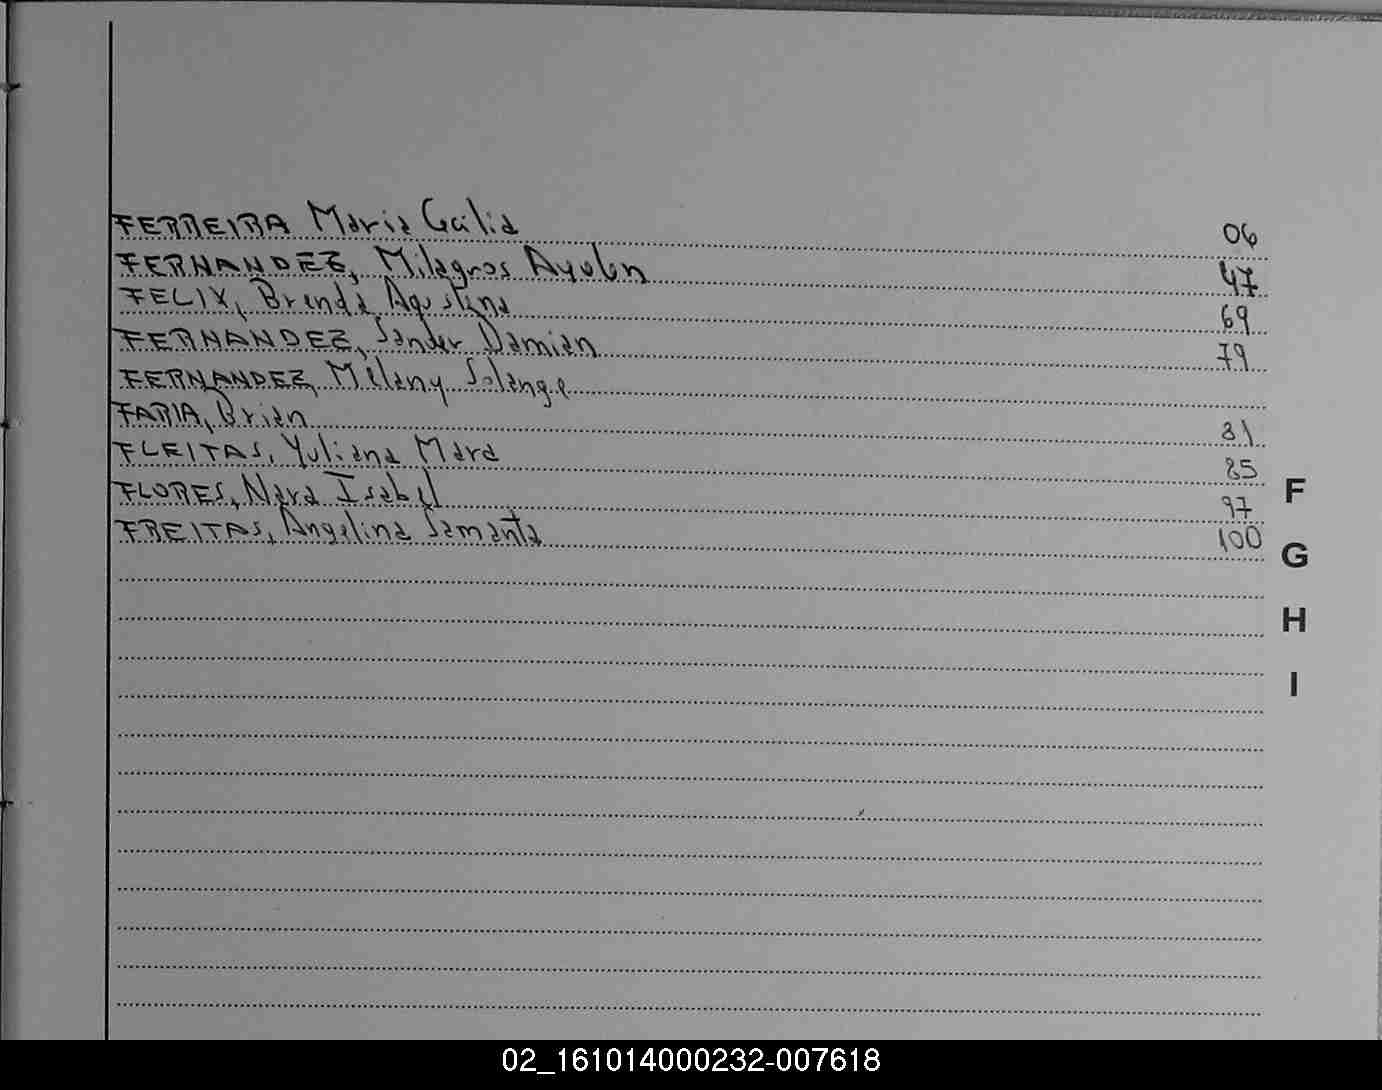 FERREIRA Maria Galia 06
FERNANDEZ, Milagros Ayelen 47
FELIX, Brenda Agustina 69
FERNANDEZ, Sander Damian 79
FERNANDEZ, Melany Solange
FARIA, Brian 81
FLEITAS, Yuliana Mara 85
FLORES, Nara Isabel 97
FREITAS, Angelina Samanta 100
F
G
H
I
02_161014000232-007618